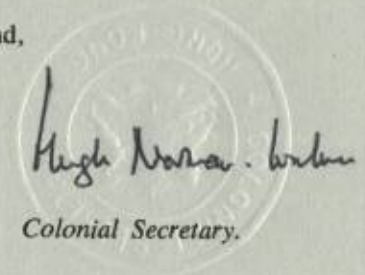 nd,
Hugh Norman-Walker
Colonial Secretary.